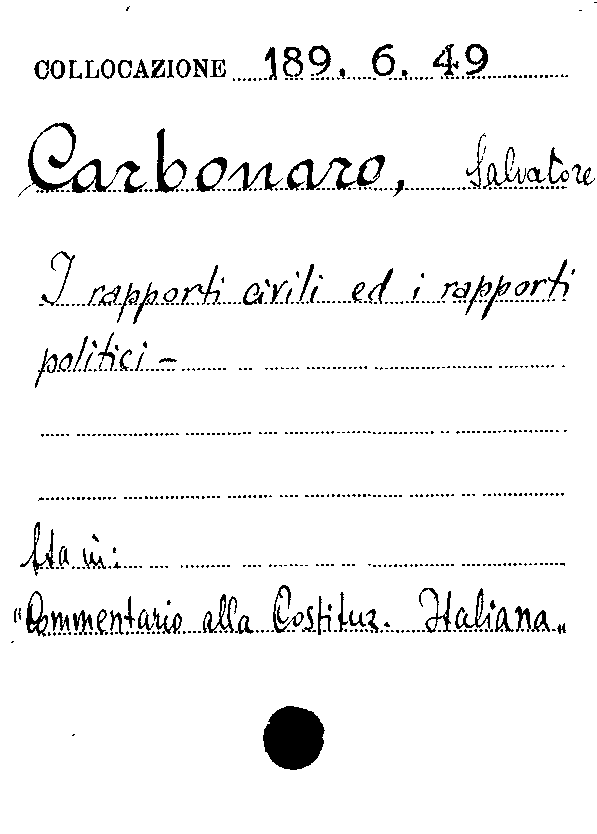 COLLOCAZIONE 189. 6. 49
Carbonaro, Salvatore
I rapporti civili ed i rapporti
politici -
Sta in:
"Commentario alla Costituz. Italiana"